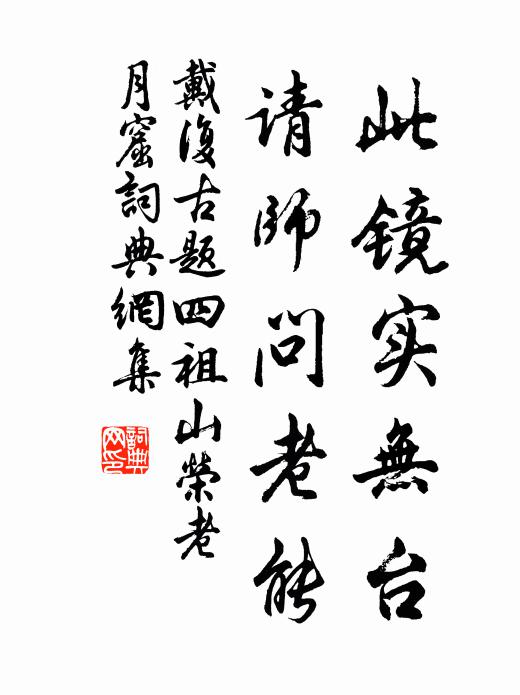 此镜实無台
请師问老能
戴復古题四祖山榮老
月窟詞典網集
詞典
网印